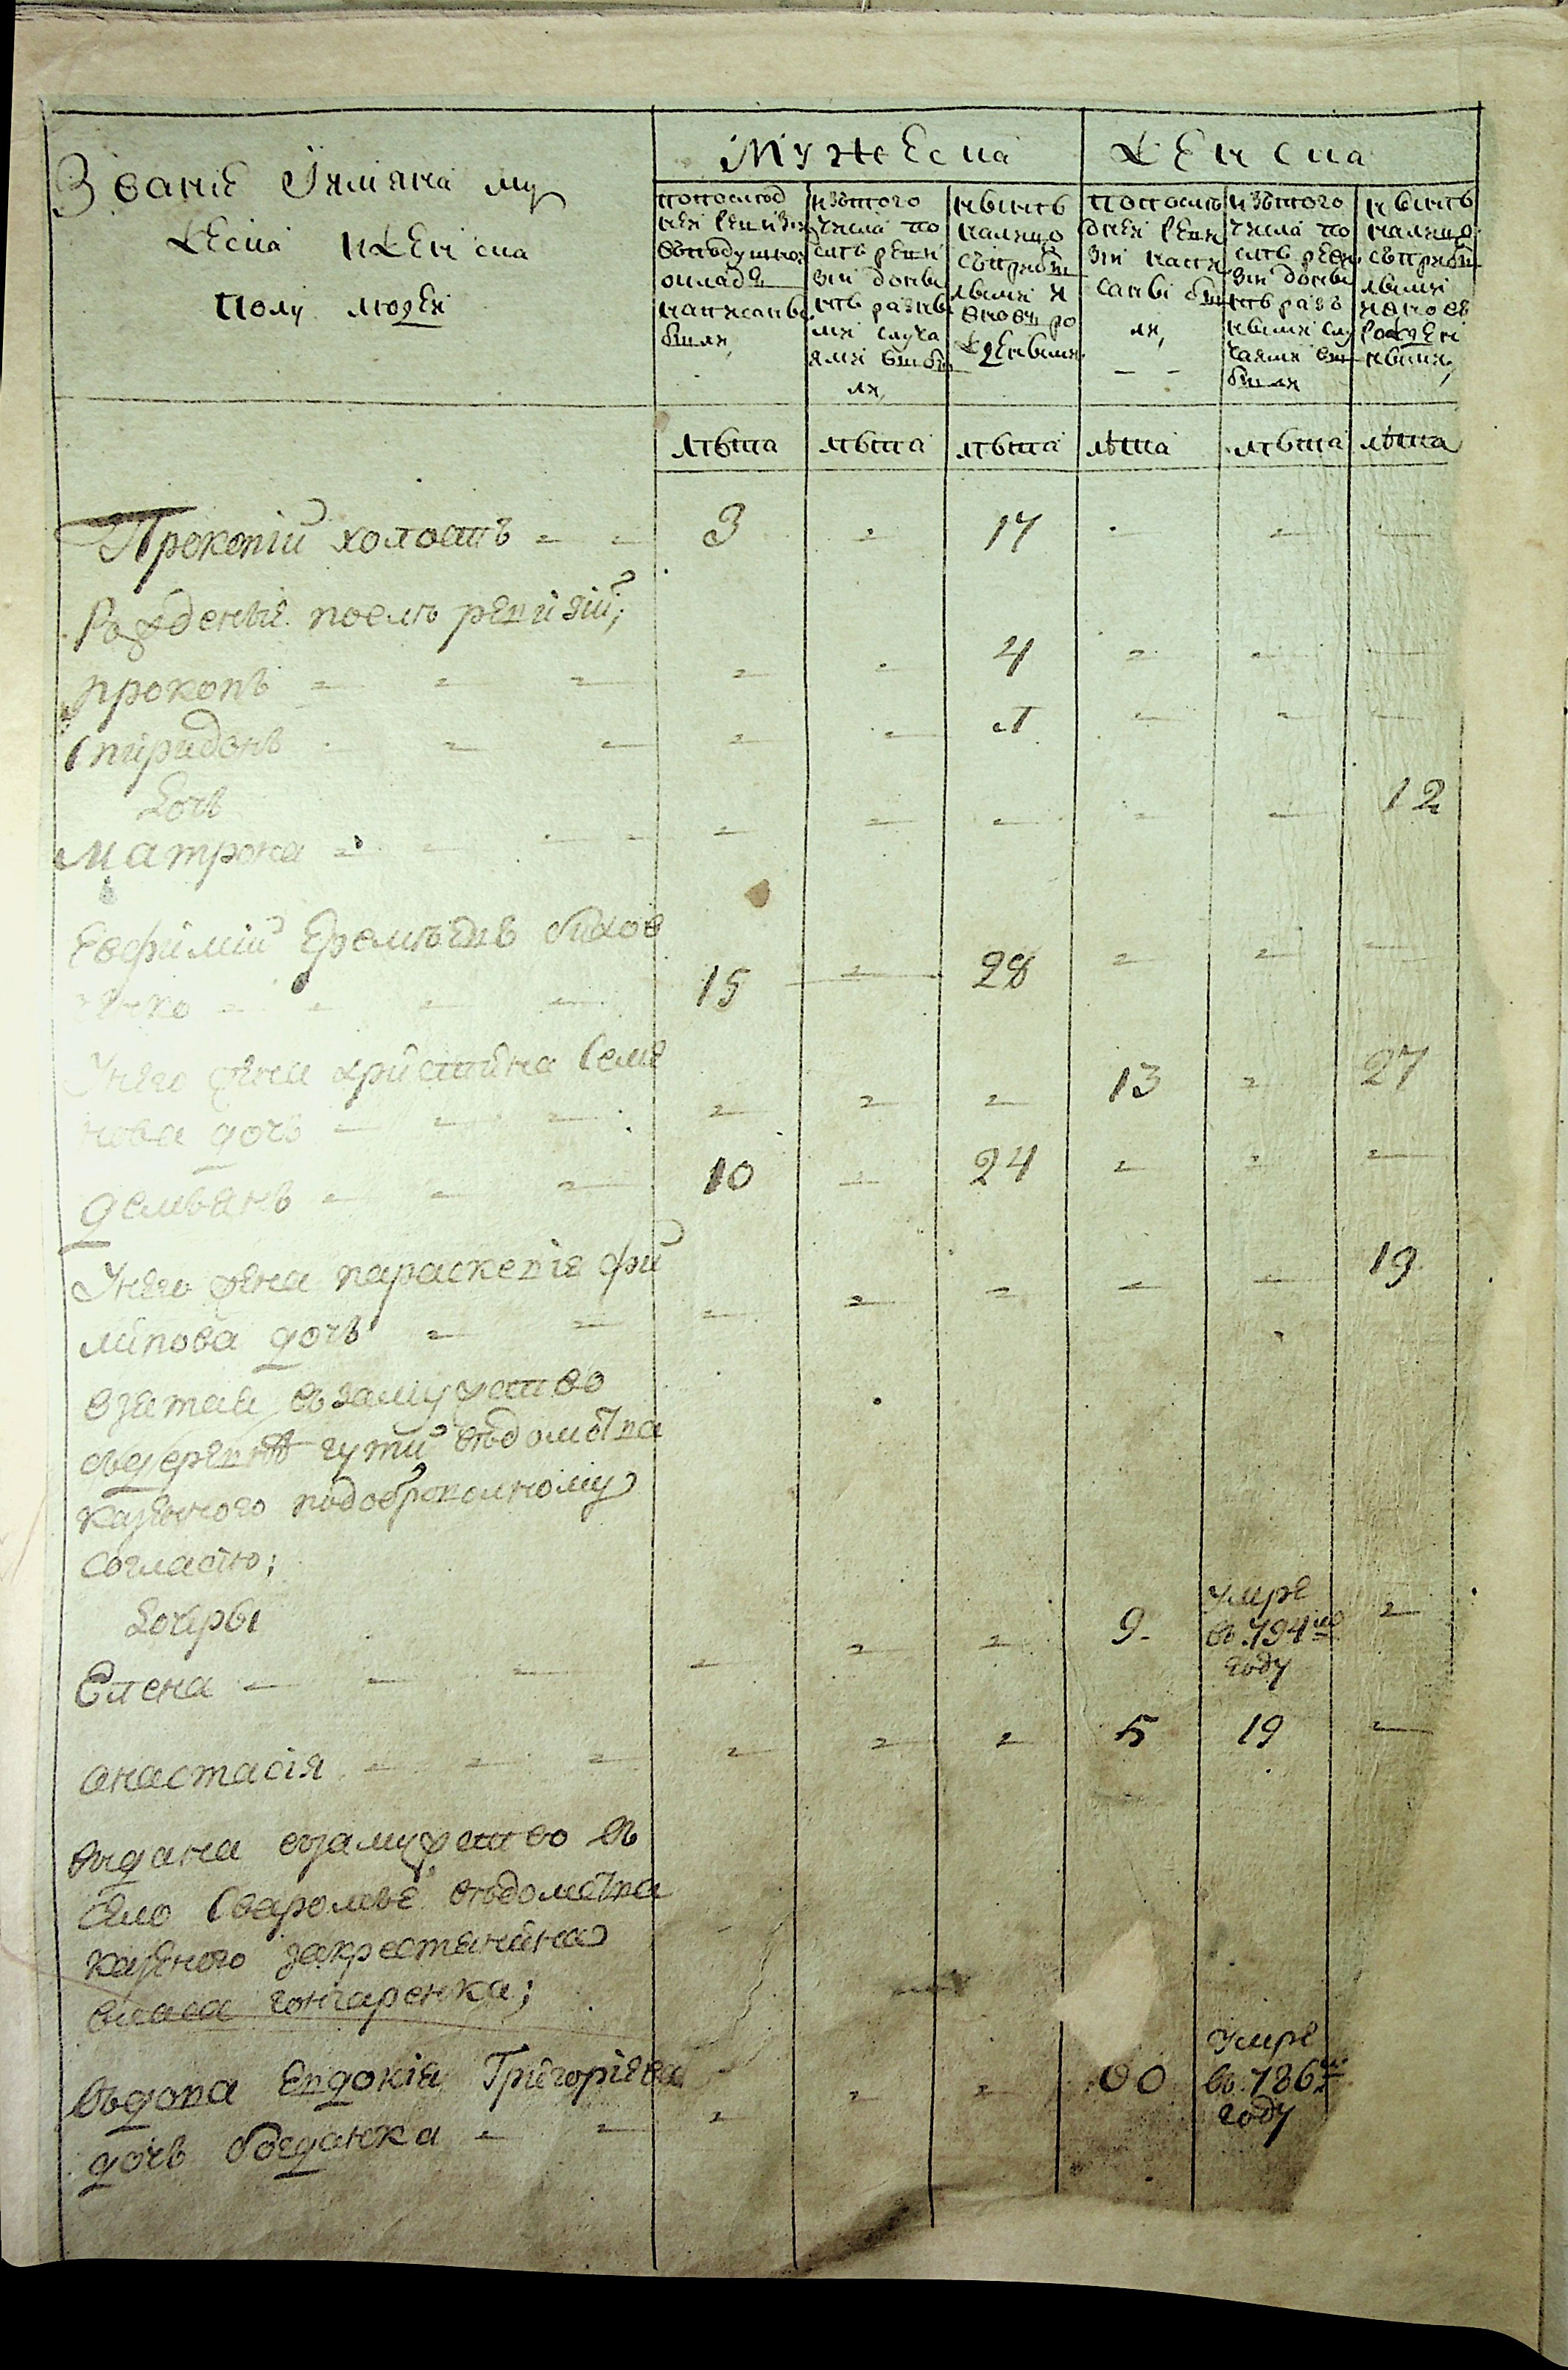 Званіе Iимяна му
жеска иженска
полу людей
Мужеска
Женска
попослед
ней ревизіи
въподушно
окладѣ
написанны
были,
изътого
числа по
слѣ реви
зіи доны
нѣ разны
ми случа
ями выбы
ли,
нынѣ
налицо
съприбы
лыми и
вновь ро
жденными
попослѣ
дней реви
зіи напи
саны бы
ли,
изътого
числа по
слѣ реви
зіи доны
нѣ разъ
ными слу
чаями вы
были
нынѣ
налицо
съприбы
лыми
иновь
рожден
ными,
лѣта лѣта лѣта лѣта лѣта лѣта
Прокопій холостъ 3 17
Рожденые послѣ ревизій;
прокопъ 4
Спиридонъ 1
Дочь
матрона 12
Евфимій Еремѣевъ
15 28
Унего жена христина Семе
нова дочь 13 27
демьянъ 10 24
Унего жена параскевія фи
липова дочь 19
взятая взамужство
здеревнѣ гути вѣдомства
казенного подоброволному
согласію;
Дочеры
Елена 9 умре
въ 794мъ
году
анастасія 5 19
выдана взамужство въ
село Сваромье вѣдомства
казеного закрестянина
власа гончаренка;
вьдова Евдокія Григоріева
дочь богданка 60 Умре
въ 786м
году